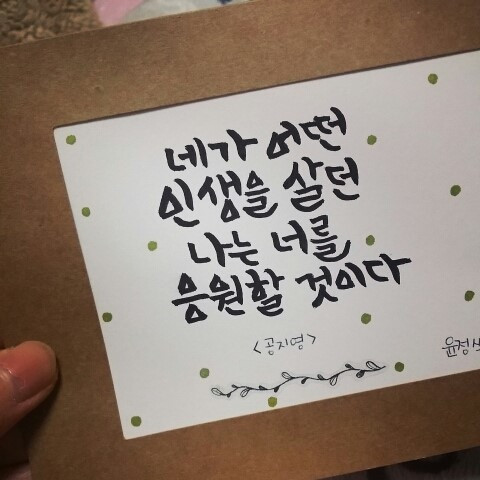 네가 어떤
인생을 살던
나는 너를
응원할 것이다
<공지영>
윤정